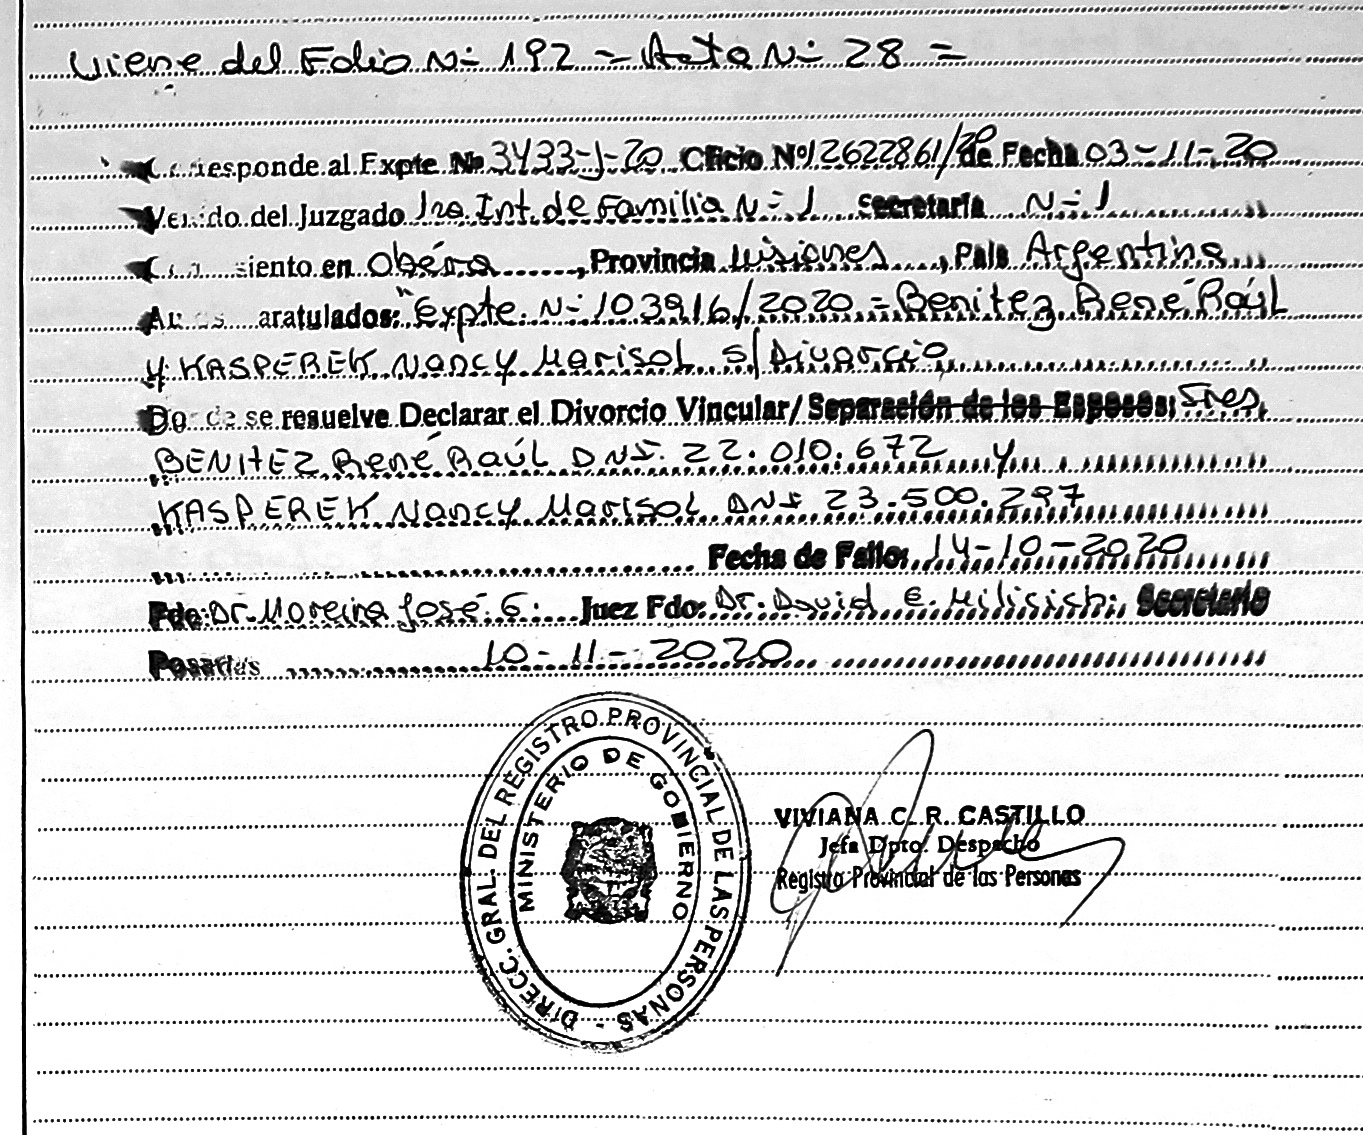 Viene del Folio N- 192 = Acta N- 28 =
Corresponde al Expte Nº 3433-J-20 Oficio Nº 12622861/20 de Fecha 03-11-20
Venido del Juzgado 1ro. Int. de Familia N- 1 Secretaria N- 1
Con asiento en Oberá, Provincia Misiones, Pais Argentina
Autos caratulados: "Expte. N- 103916/2020 = Benitez René Raúl
y KASPEREK Nancy Marisol s/Divorcio
Donde se resuelve Declarar el Divorcio Vincular/Separación de los Esposos: Sres.
BENITEZ René Raúl DNI. 22.010.672 y
KASPEREK Nancy Marisol DNI 23.500.297
Fecha de Fallo: 14-10-2020
Fdo: Dr. Moreira José G. Juez Fdo: Dr. David E. Milisich. Secretario
Posadas 10-11-2020
DIRECC. GRAL. DEL REGISTRO PROVINCIAL DE LAS PERSONAS -
MINISTERIO DE GOBIERNO
VIVIANA C. R. CASTILLO
Jefa Dpto. Despacho
Registro Provincial de las Personas